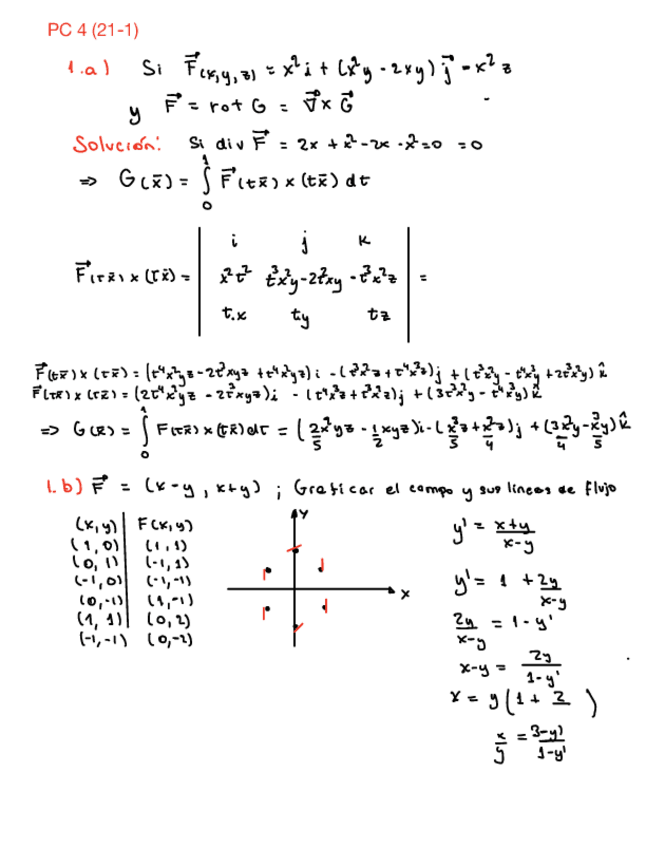 PC 4 (21-1)
1.a) Si F⃗(x,y,z) = x² i + (x²y - 2xy) j⃗ - x² z
y F⃗ = rot G = ∇⃗ x G⃗
Solución: Si div F⃗ = 2x + x² - 2x - x² = 0 = 0
⇒ G(x̄) = ∫₀¹ F⃗(tx̄) × (tx̄) dt
i j k
F⃗(tx̄) × (tx̄) = | x²t² t³x²y - 2t²xy - t³x²z | =
t.x ty tz
F⃗(tx̄) × (tx̄) = (t⁴x²yz - 2t³xyz + t⁴x²yz) i - (t³x²z + t⁴x³z) j + (t³x²y - t⁴x³y + 2t³x²y) k̂
F(tx̄) × (tx̄) = (2t⁴x²yz - 2t³xyz) i - (t⁴x³z + t³x²z) j + (3t³x²y - t⁴x³y) k̂
⇒ G(x̄) = ∫₀¹ F(tx̄) × (tx̄) dt = (2/5 x²yz - 1/2 xyz) i - (x³z/5 + x²z/4) j + (3x²y/4 - x³y/5) k̂
1.b) F⃗ = (x-y, x+y) ; Graficar el campo y sus líneas de flujo
(x,y) | F(x,y)
(1, 0) (1, 1)
(0, 1) (-1, 1)
(-1, 0) (-1, -1)
(0, -1) (1, -1)
(1, 1) (0, 2)
(-1, -1) (0, -2)
y
x
y' = x+y / x-y
y' = 1 + 2y / x-y
2y / x-y = 1 - y'
x-y = 2y / 1-y'
x = y (1 + 2 )
x/y = 3-y' / 1-y'